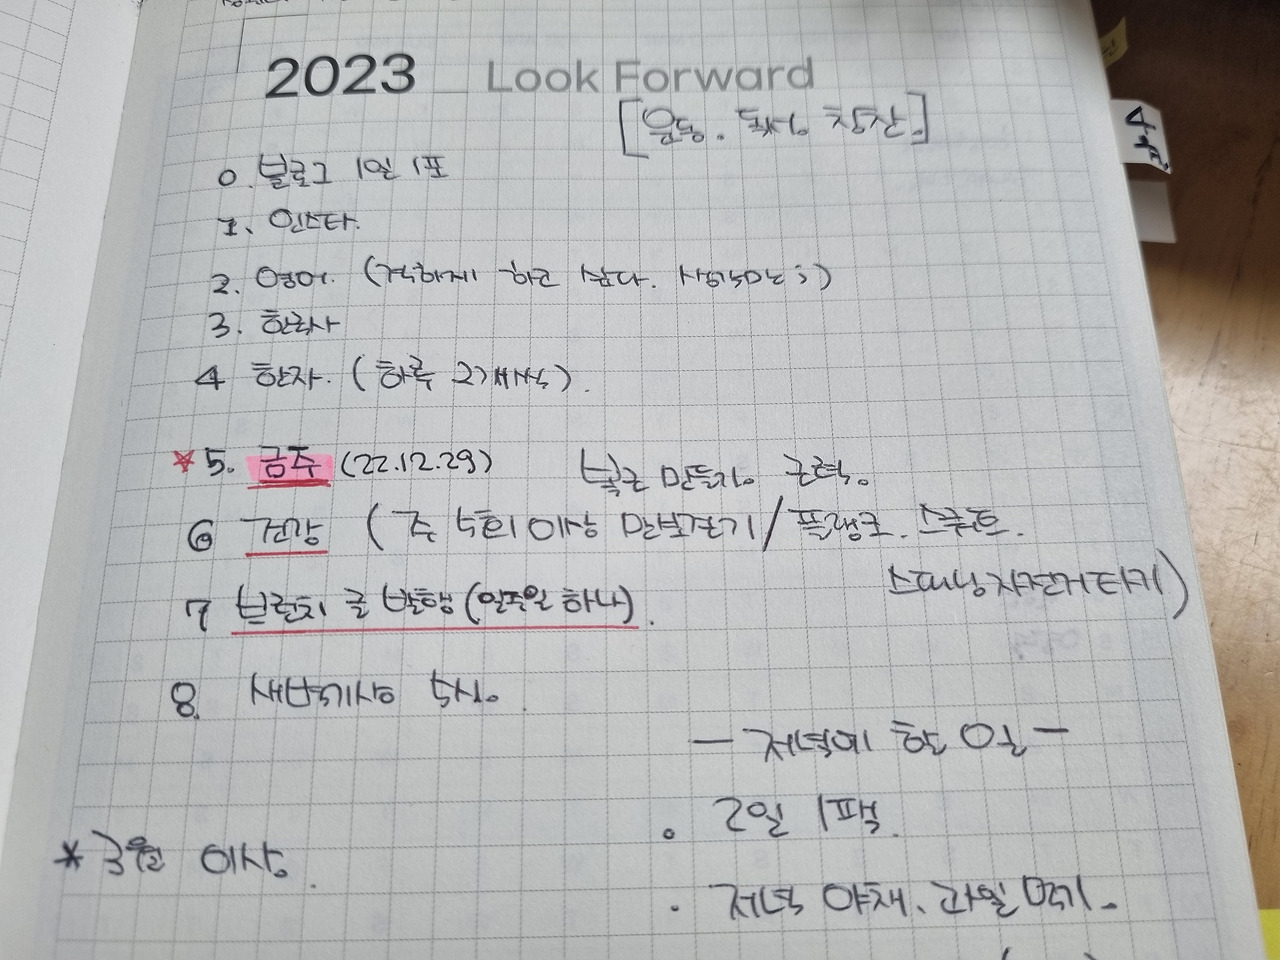 2023 Look Forward
[운동. 독서. 칭찬.]
0. 블로그 1일 1포
1. 인스타.
2. 영어. (격하게 하고 싶다.
3. 한국사
4 한자. (하루 2개씩).
*5. 금주 (22.12.29)
복근 만들기. 근력.
6 건강 (주 5회 이상 만보걷기/플랭크. 스쿼트.
스피닝자전거타기)
7 브런치 글 발행 (일주일 하나).
8. 새벽기상
— 저녁에 할 일 —
• 2일 1팩.
* 3월 이상.
• 저녁 야채、과일 먹기.